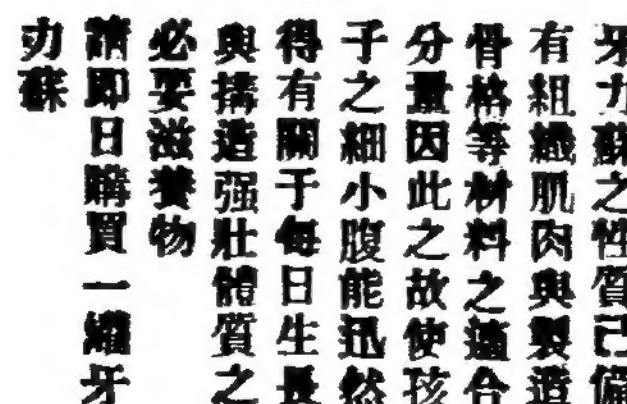 牙力蘇之性質已備
有組織肌肉與製造
骨格等材料之適合
分量因此之故使孩
子之細小腹能迅然
得有關于每日生長
與搆造强壯體質之
必要滋養物
請即日購買一罐牙
力蘇